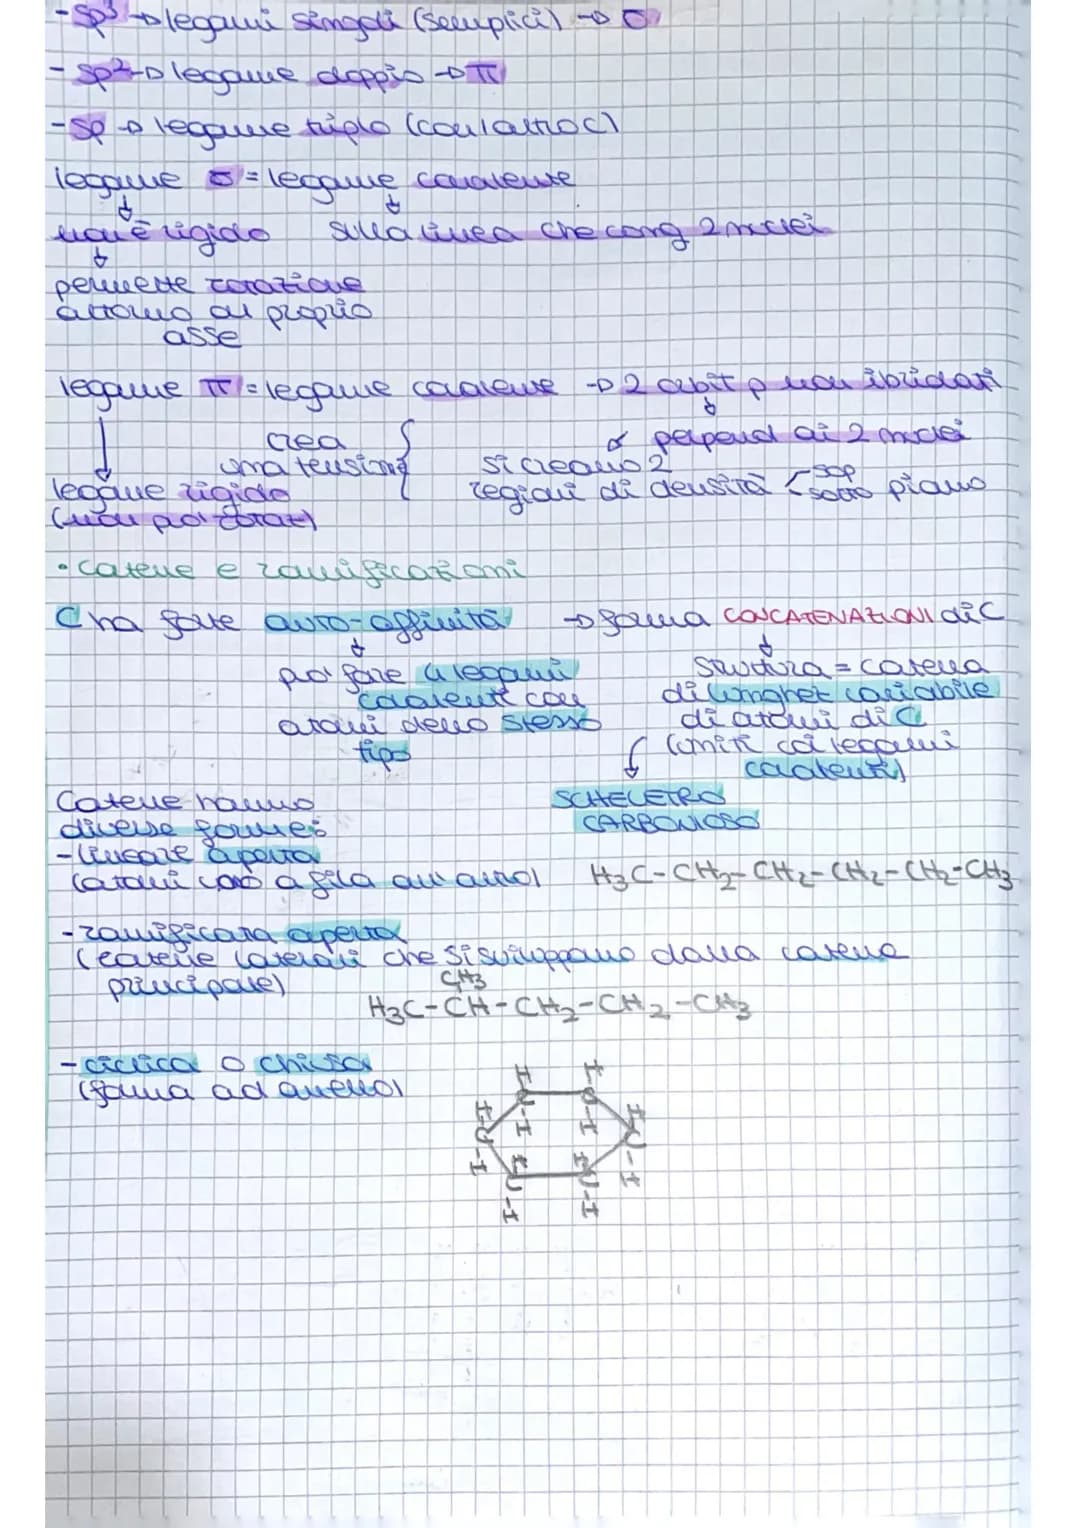 - sp³ → legami singoli (semplici) → σ
- sp² → legame doppio → π
- sp → legame triplo (con l altro C)
legame σ = legame covalente
non è rigido sulla linea che cong 2 nuclei
permette rotazione
attorno al proprio
asse
legame π = legame covalente → 2 orbit p non ibridati
crea perpend ai 2 nuclei
una tensione si creano 2
legame rigido regioni di densità sop sotto piano
(non può rotat)
• catene e ramificazioni
C ha forte auto-affinità → forma CONCATENAZIONI di C
può fare 4 legami struttura = catena
covalenti con di lunghez variabile
atomi dello stesso di atomi di C
tipo (uniti coi legami
covalenti)
Catene hanno SCHELETRO
diverse forme: CARBONIOSO
- lineare aperta
(atomi uno a fila all'altro) H₃C-CH₂-CH₂-CH₂-CH₂-CH₃
- ramificata aperta
(catene laterali che si sviluppano dalla catena
principale) CH₃
H₃C-CH-CH₂-CH₂-CH₃
- ciclica o chiusa
(forma ad anello)
H-C-H H-C-H
H-C-H H-C-H
H-C-H H-C-H